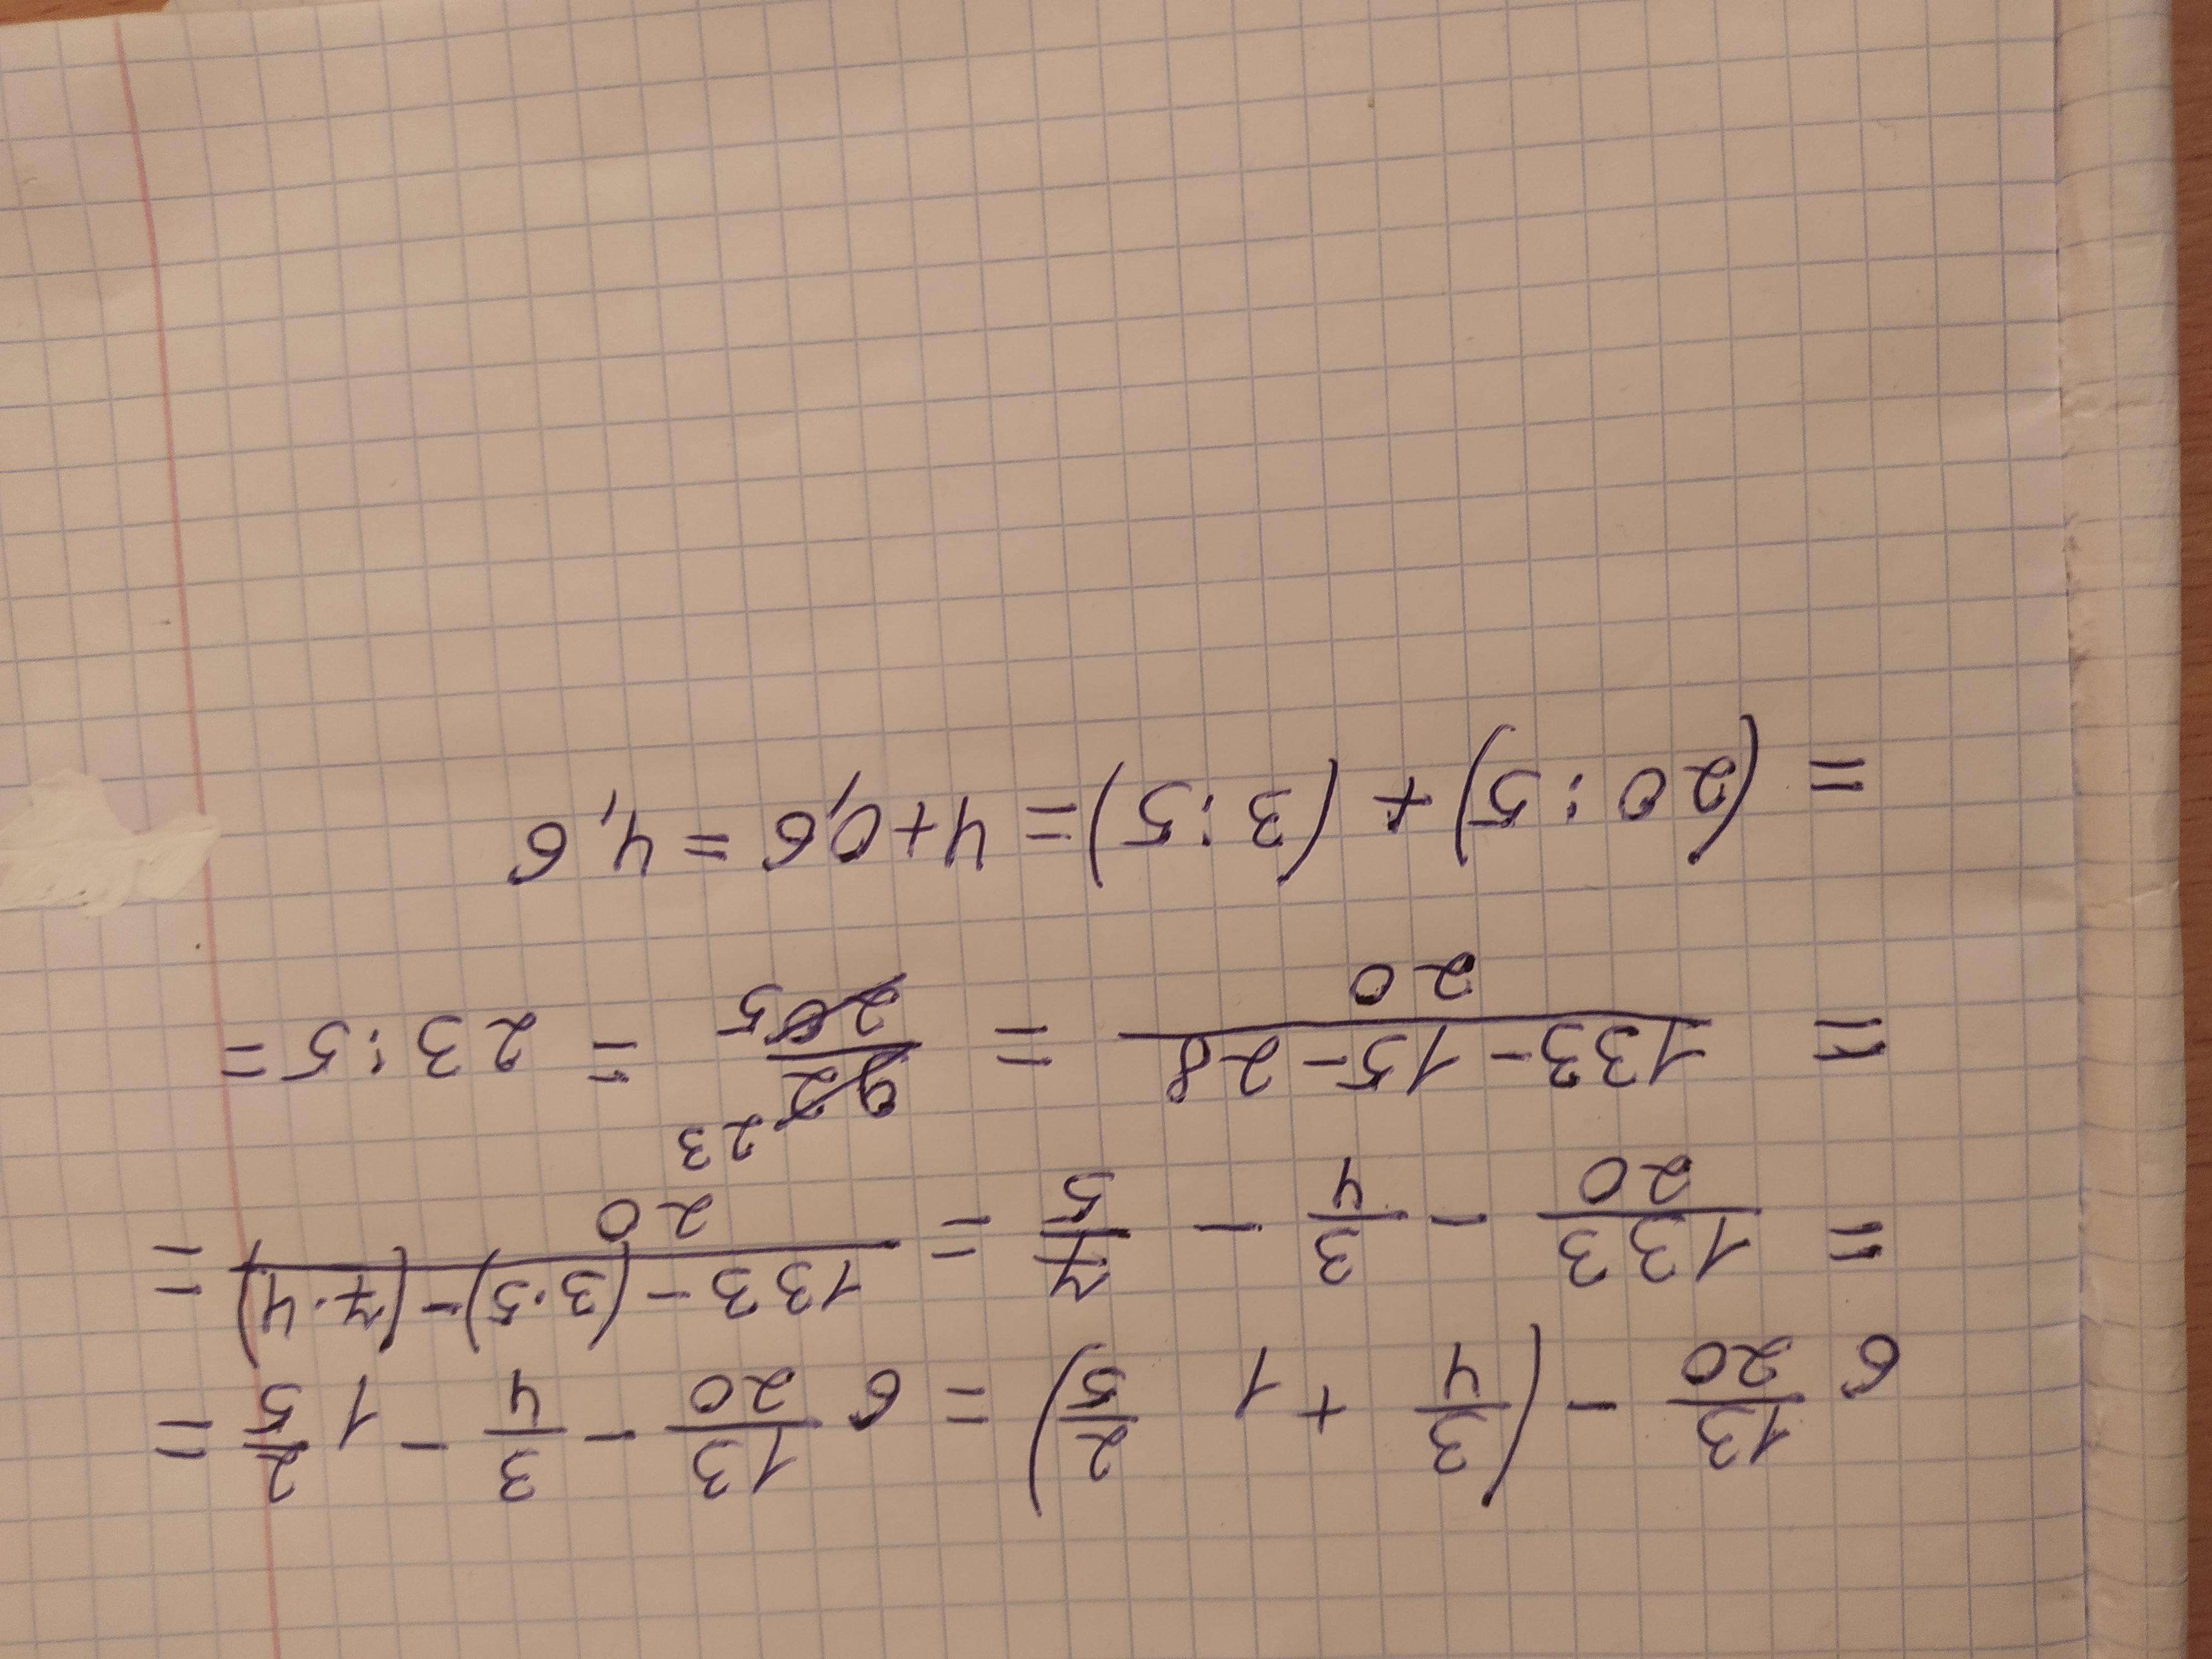 6 13/20 - (3/4 + 1 2/5) = 6 13/20 - 3/4 - 1 2/5 =
= 133/20 - 3/4 - 7/5 = 133-(3·5)-(7·4)/20 =
= 133-15-28/20 = 92 23/20 5 = 23:5 =
= (20:5) + (3:5) = 4+0,6 = 4,6